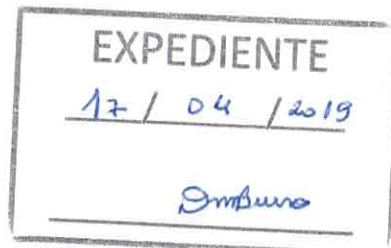 EXPEDIENTE
17 / 04 / 2019